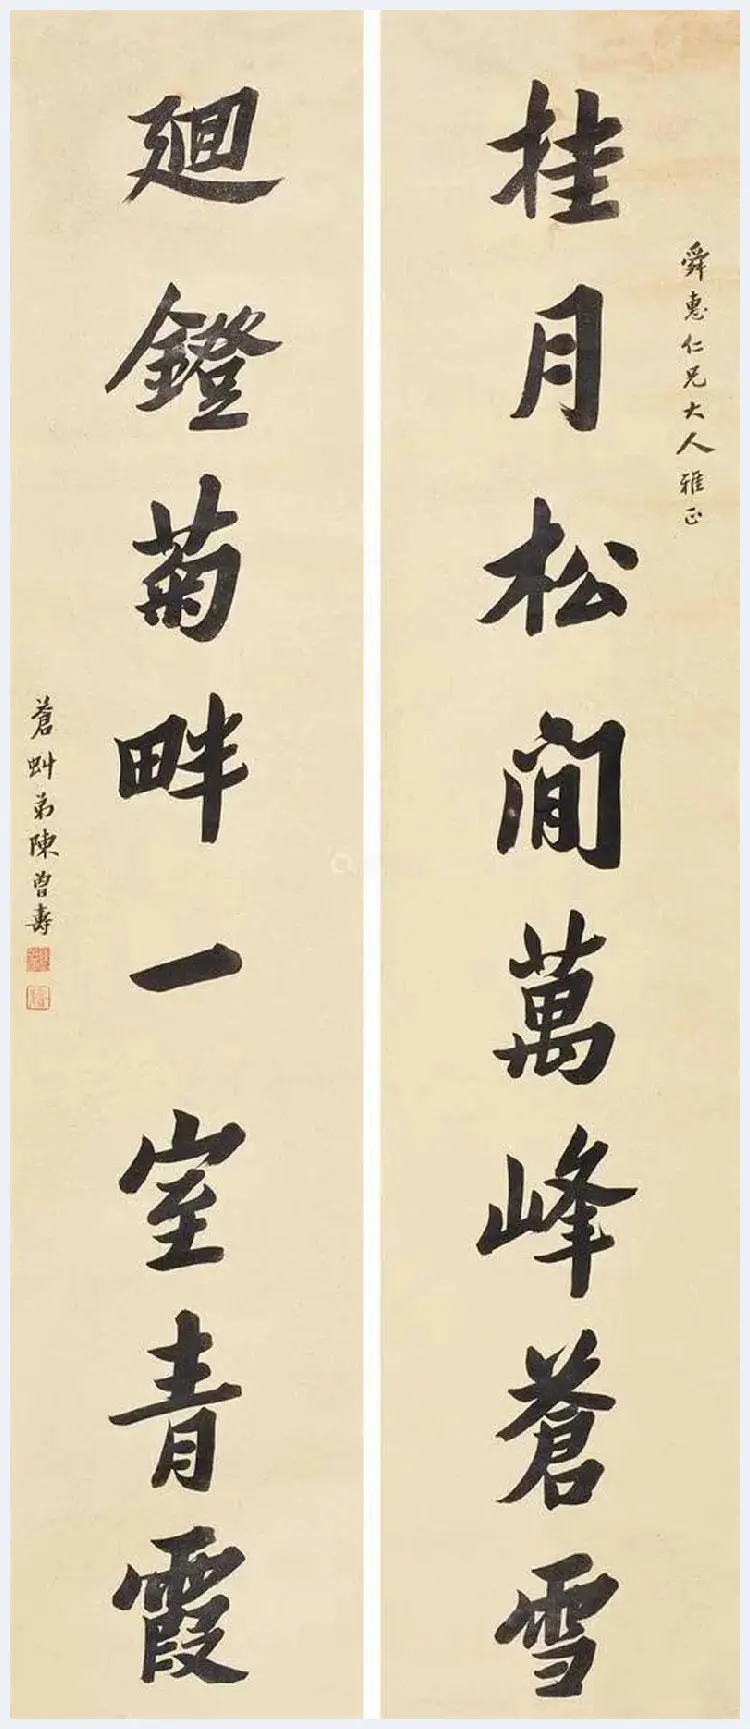 舜惠仁兄大人雅正
挂月松閒萬峰蒼雪
廻鐙菊畔一室青霞
蒼虯弟陳曾壽